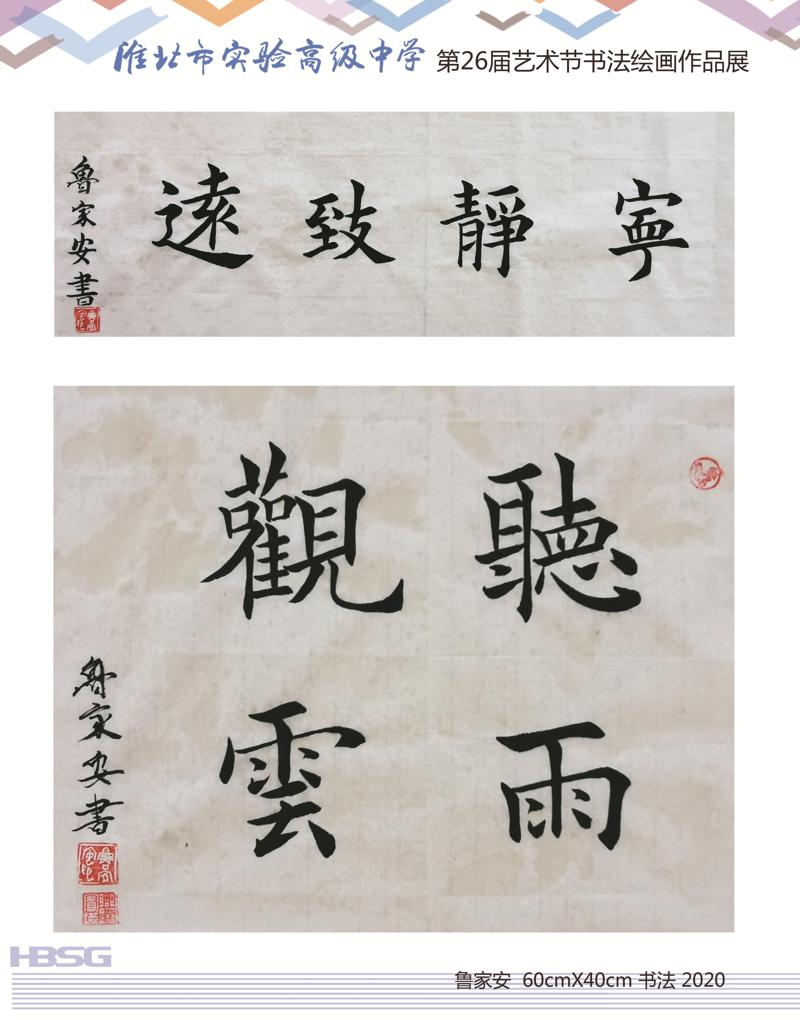 淮北市实验高级中学 第26届艺术节书法绘画作品展
寧靜致遠
魯家安書
聽雨
觀雲
魯家安書
HBSG
鲁家安 60cmX40cm 书法 2020